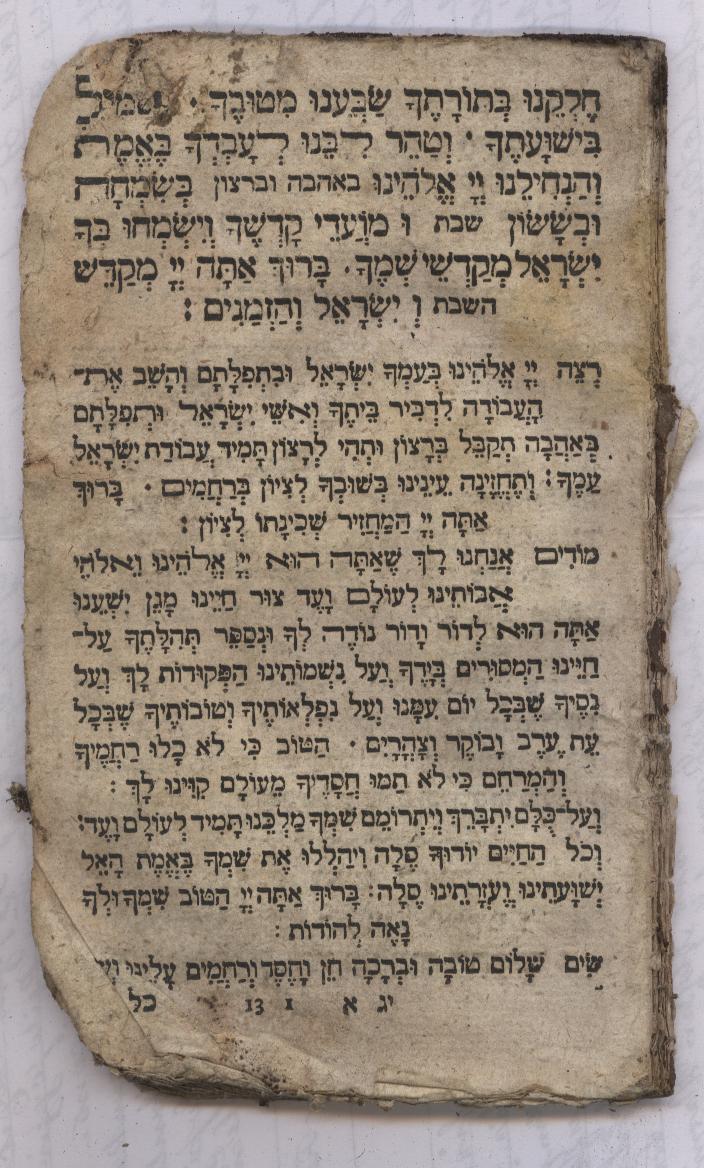 חֶלְקֵנוּ בְּתוֹרָתֶךָ שַׂבְּעֵנוּ מִטוּבֶךָ ·
בִּישׁוּעָתֶךָ · וְטַהֵר לִבֵּנוּ לְעָבְדְּךָ בֶּאֱמֶת
וְהַנְחִילֵנוּ יְיָ אֱלֹהֵינוּ באהבה וברצון בְּשִׂמְחָה
וּבְשָׂשׂוֹן שבת וּ מוֹעֲדֵי קָדְשֶׁךָ וְיִשְׂמְחוּ בְךָ
יִשְׂרָאֵל מְקַדְּשֵׁי שְׁמֶךָ · בָּרוּךְ אַתָּה יְיָ מְקַדֵּשׁ
השבת וְ יִשְׂרָאֵל וְהַזְמַנִים :
רְצֵה יְיָ אֱלֹהֵינוּ בְּעַמְּךָ יִשְׂרָאֵל וּבִתְפִלָּתָם וְהָשֵׁב אֶת־
הָעֲבוֹדָה לִדְבִיר בֵּיתֶךָ וְאִשֵּׁי יִשְׂרָאֵל וּתְפִלָּתָם
בְּאַהֲבָה תְקַבֵּל בְּרָצוֹן וּתְהִי לְרָצוֹן תָּמִיד עֲבוֹדַת יִשְׂרָאֵל
עַמֶּךָ : וְתֶחֱזֶינָה עֵינֵינוּ בְּשׁוּבְךָ לְצִיוֹן בְּרַחֲמִים · בָּרוּךְ
אַתָּה יְיָ הַמַּחֲזִיר שְׁכִינָתוֹ לְצִיוֹן :
מוֹדִים אֲנַחְנוּ לָךְ שֶׁאַתָּה הוּא יְיָ אֱלֹהֵינוּ וֵאלֹהֵי
אֲבוֹתֵינוּ לְעוֹלָם וָעֶד צוּר חַיֵינוּ מָגֵן יִשְׁעֵנוּ
אַתָּה הוּא לְדוֹר וָדוֹר נוֹדֶה לְךָ וּנְסַפֵּר תְּהִלָּתֶךָ עַל־
חַיֵּינוּ הַמְּסוּרִים בְּיָדֶךָ וְעַל נִשְׁמוֹתֵינוּ הַפְּקוּדוֹת לָךְ וְעַל
נִסֶּיךָ שֶׁבְּכָל יוֹם עִמָּנוּ וְעַל נִפְלְאוֹתֶיךָ וְטוֹבוֹתֶיךָ שֶׁבְּכָל
עֵת עֶרֶב וָבוֹקֶר וְצָהֳרָיִם · הַטּוֹב כִּי לֹא כָלוּ רַחֲמֶיךָ
וְהַמְרַחֵם כִּי לֹא תַמּוּ חֲסָדֶיךָ מֵעוֹלָם קִוִּינוּ לָךְ :
וְעַל־כֻּלָּם יִתְבָּרֵךְ וְיִתְרוֹמֵם שִׁמְךָ מַלְכֵּנוּ תָּמִיד לְעוֹלָם וָעֶד :
וְכֹל הַחַיִּים יוֹדוּךָ סֶּלָה וִיהַלְלוּ אֶת שִׁמְךָ בֶּאֱמֶת הָאֵל
יְשׁוּעָתֵינוּ וְעֶזְרָתֵינוּ סֶלָה : בָּרוּךְ אַתָּה יְיָ הַטּוֹב שִׁמְךָ וּלְךָ
נָאֶה לְהוֹדוֹת :
שִׂים שָׁלוֹם טוֹבָה וּבְרָכָה חֵן וָחֶסֶד וְרַחֲמִים עָלֵינוּ
יג א 1 13 כל